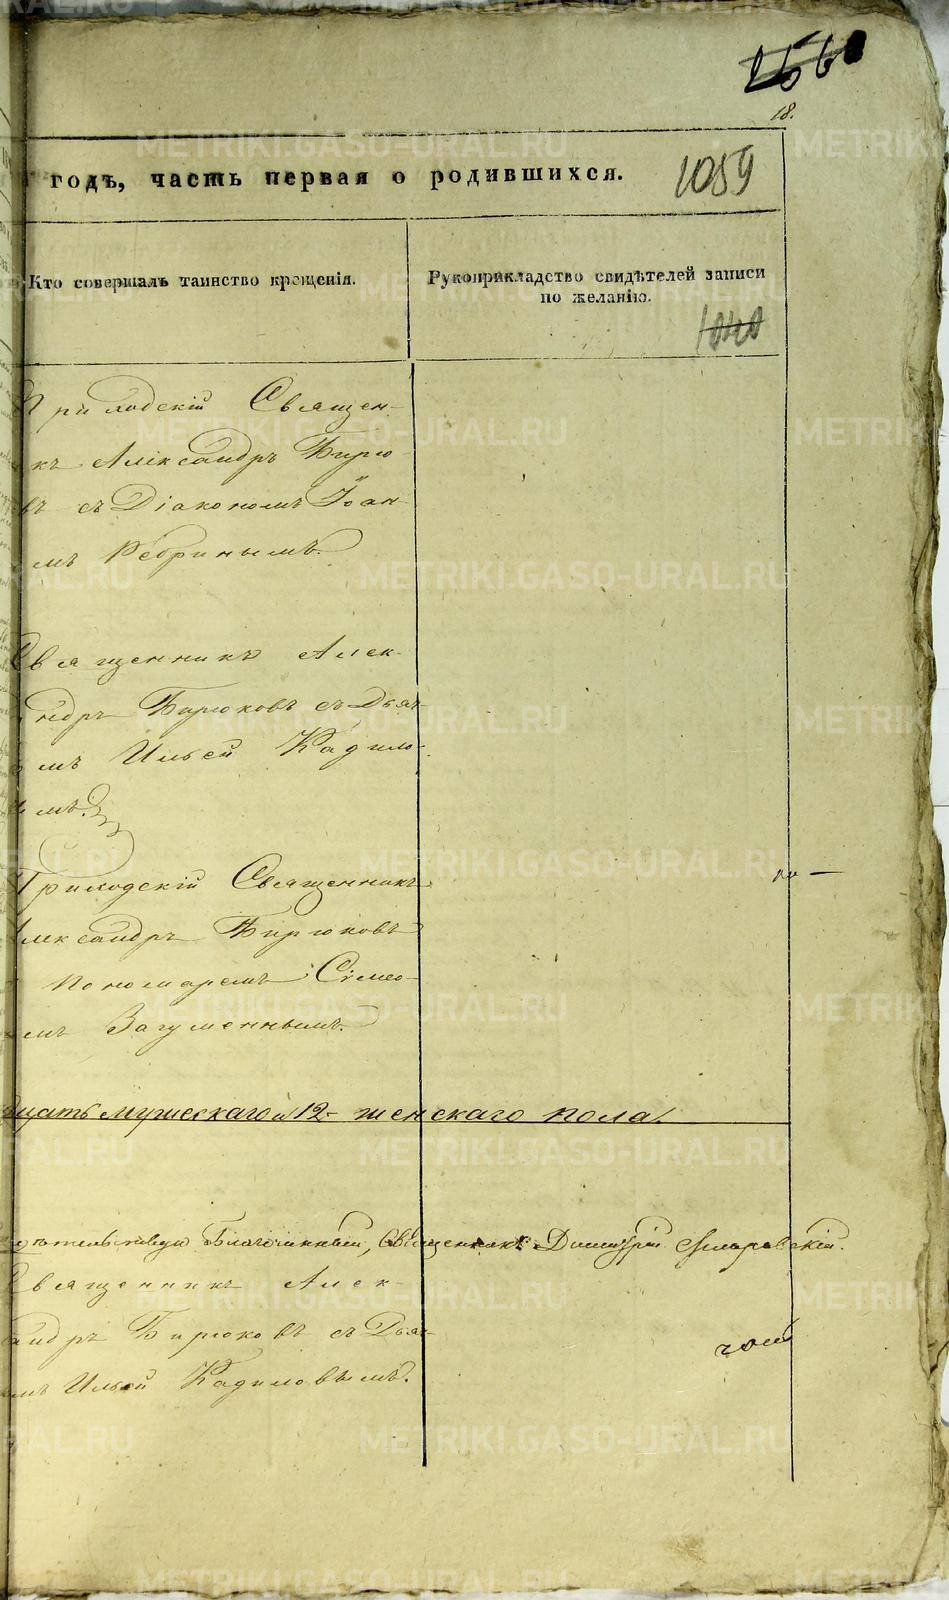 18.
годъ, часть первая о родившихся.
1059
Кто совершалъ таинство крещенія.
Рукоприкладство свидѣтелей записи
по желанію.
Приходскій Священ-
къ Александръ Бирю-
въ съ Діакономъ Іоан-
мъ Ребринымъ.
Священникъ Алек-
ндръ Бирюковъ съ Дьяч-
мъ Ильей Кадило-
мъ.
Приходскій Священникъ
Александръ Бирюковъ
Пономаремъ Симео-
мъ Загуменнымъ.
цать мужескаго и 12- женскаго пола.
Благочинный, Священникъ Димитрій
Священникъ Алек-
андръ Бирюковъ съ Дьяч-
мъ Ильей Кадиловымъ.
METRIKI.GASO-URAL.RU